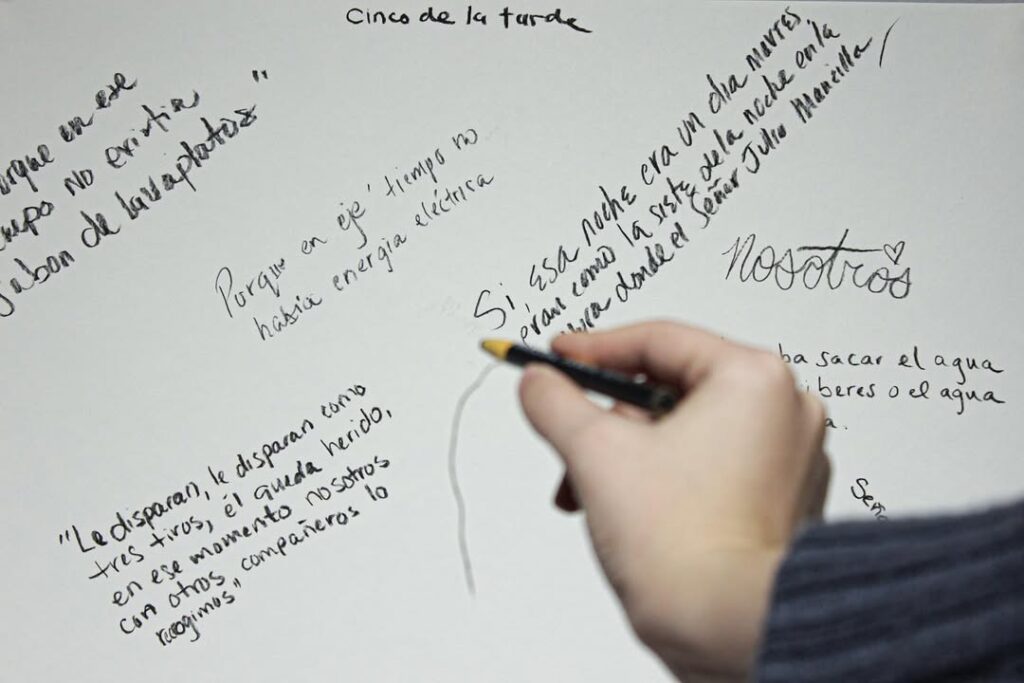 Cinco de la tarde
orque en ese
empo no existia
jabon de lavaplatos"
Porque en eje' tiempo no
habia energia eléctrica
Si, esa noche era un dia martes,
eran como la siete de la noche en la
donde el Señor Julio Mancilla/
Nosotros
ba sacar el agua
iberes o el agua
a.
Seño
"Le disparan, le disparan como
tres tiros, él queda herido,
en ese momento nosotros
con otros compañeros lo
recogimos"